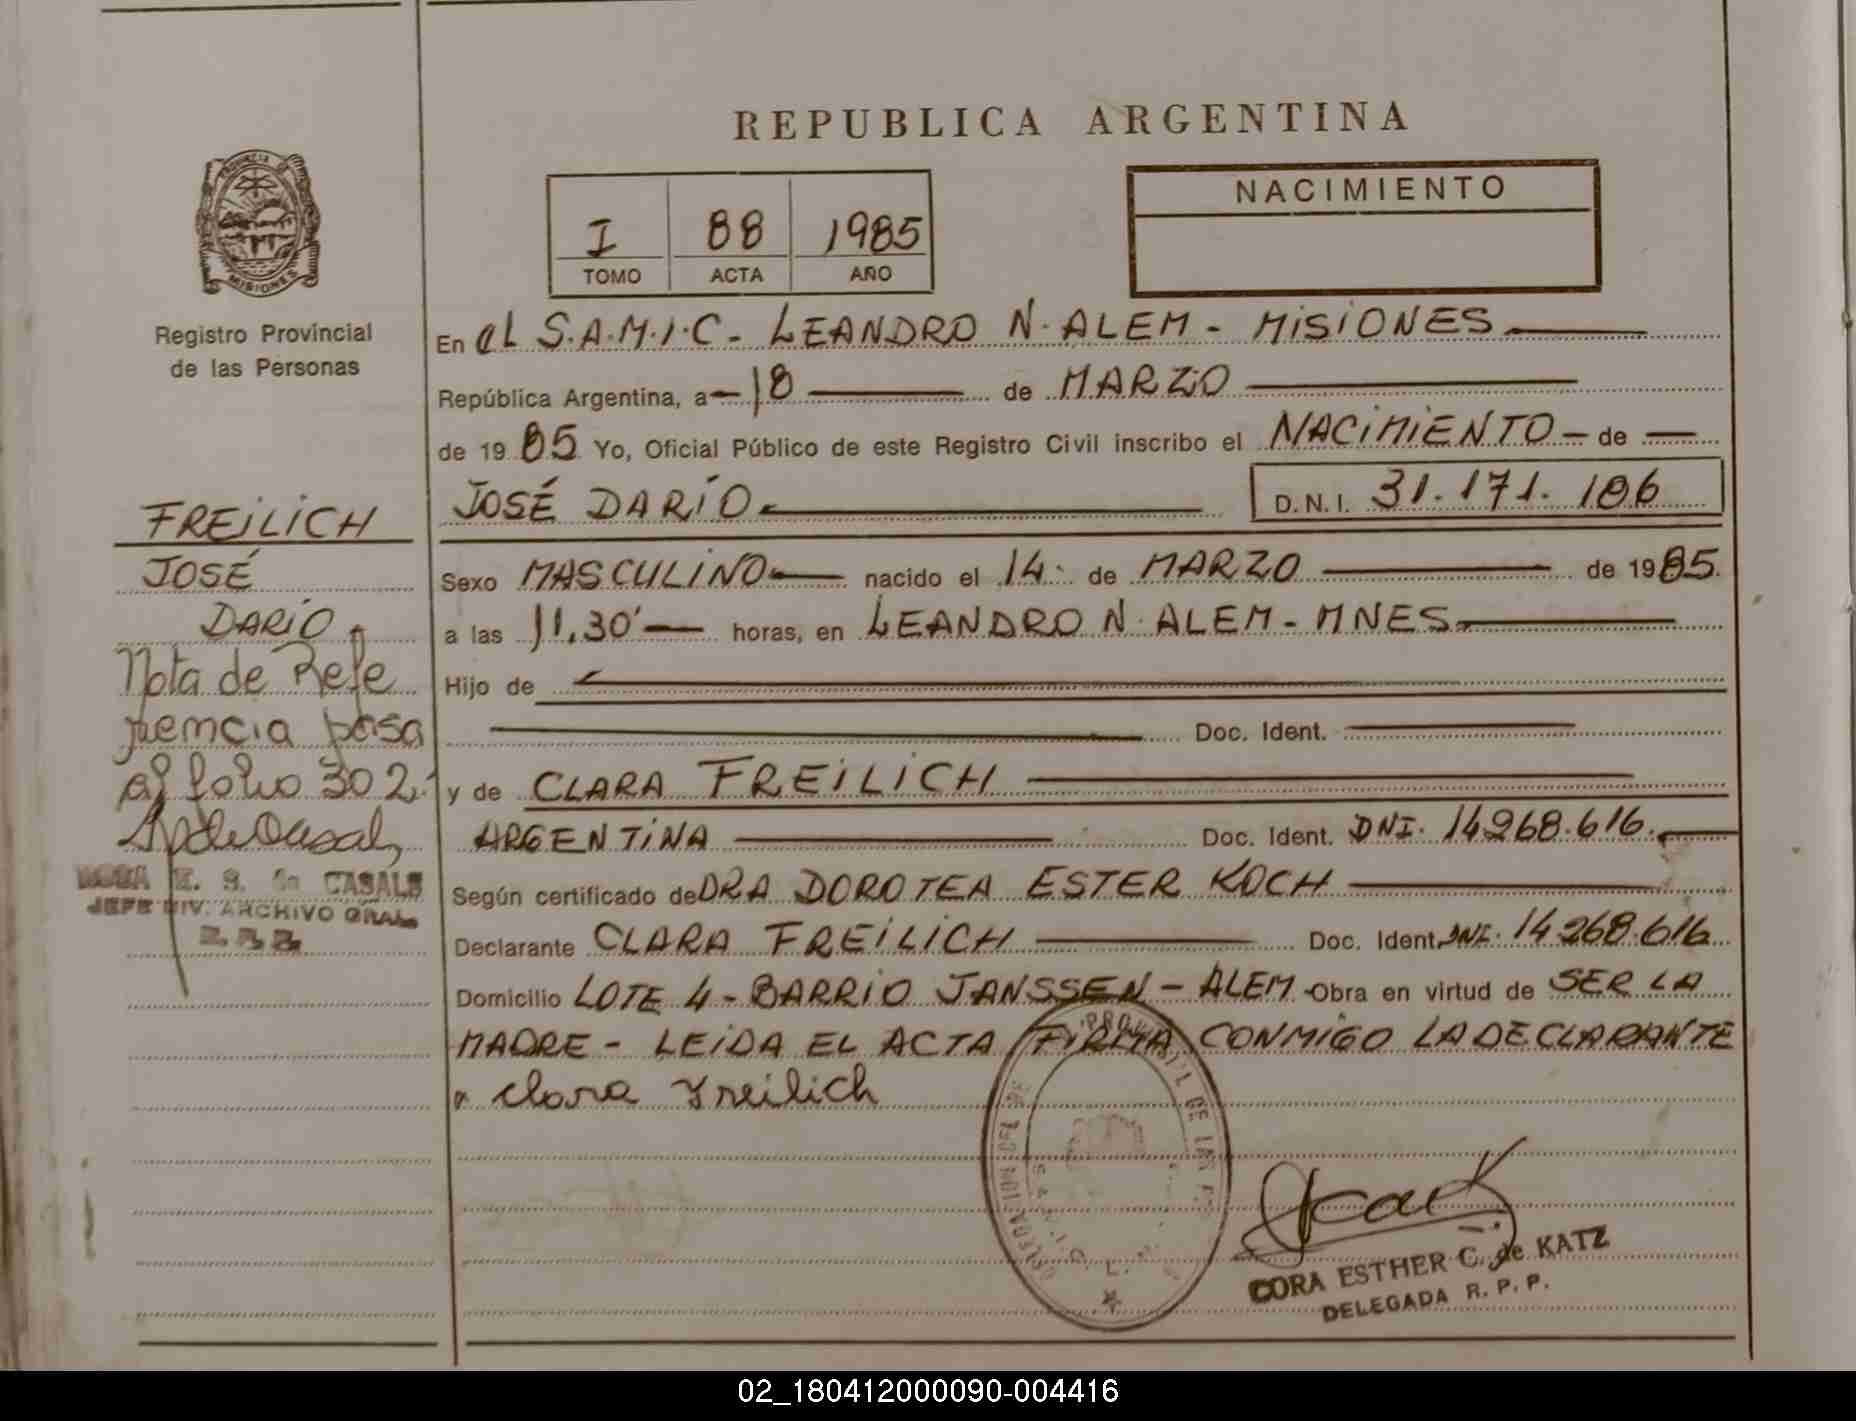 REPUBLICA ARGENTINA
PROVINCIA DE
MISIONES
Registro Provincial
de las Personas
I 88 1985
TOMO ACTA AÑO
NACIMIENTO
En el S.A.M.I.C - LEANDRO N. ALEM - MISIONES
República Argentina, a 18 de MARZO
de 1985 Yo, Oficial Público de este Registro Civil inscribo el NACIMIENTO de
JOSÉ DARÍO D.N.I. 31.171.186
Sexo MASCULINO nacido el 14 de MARZO de 1985.
a las 11,30' horas, en LEANDRO N. ALEM - MNES
Hijo de
Doc. Ident.
y de CLARA FREILICH
ARGENTINA Doc. Ident. DNI. 14.268.616.
Según certificado de DRA DOROTEA ESTER KOCH
Declarante CLARA FREILICH Doc. Ident. DNI. 14.268.616
Domicilio LOTE 4 - BARRIO JANSSEN - ALEM - Obra en virtud de SER LA
MADRE - LEIDA EL ACTA FIRMA CONMIGO LA DECLARANTE
Clara Freilich
CORA ESTHER C. de KATZ
DELEGADA R. P. P.
FREILICH
JOSÉ
DARÍO
Nota de Refe
rencia pasa
al folio 302.
E. S. de CASALS
JEFE DIV. ARCHIVO GRAL.
02_180412000090-004416